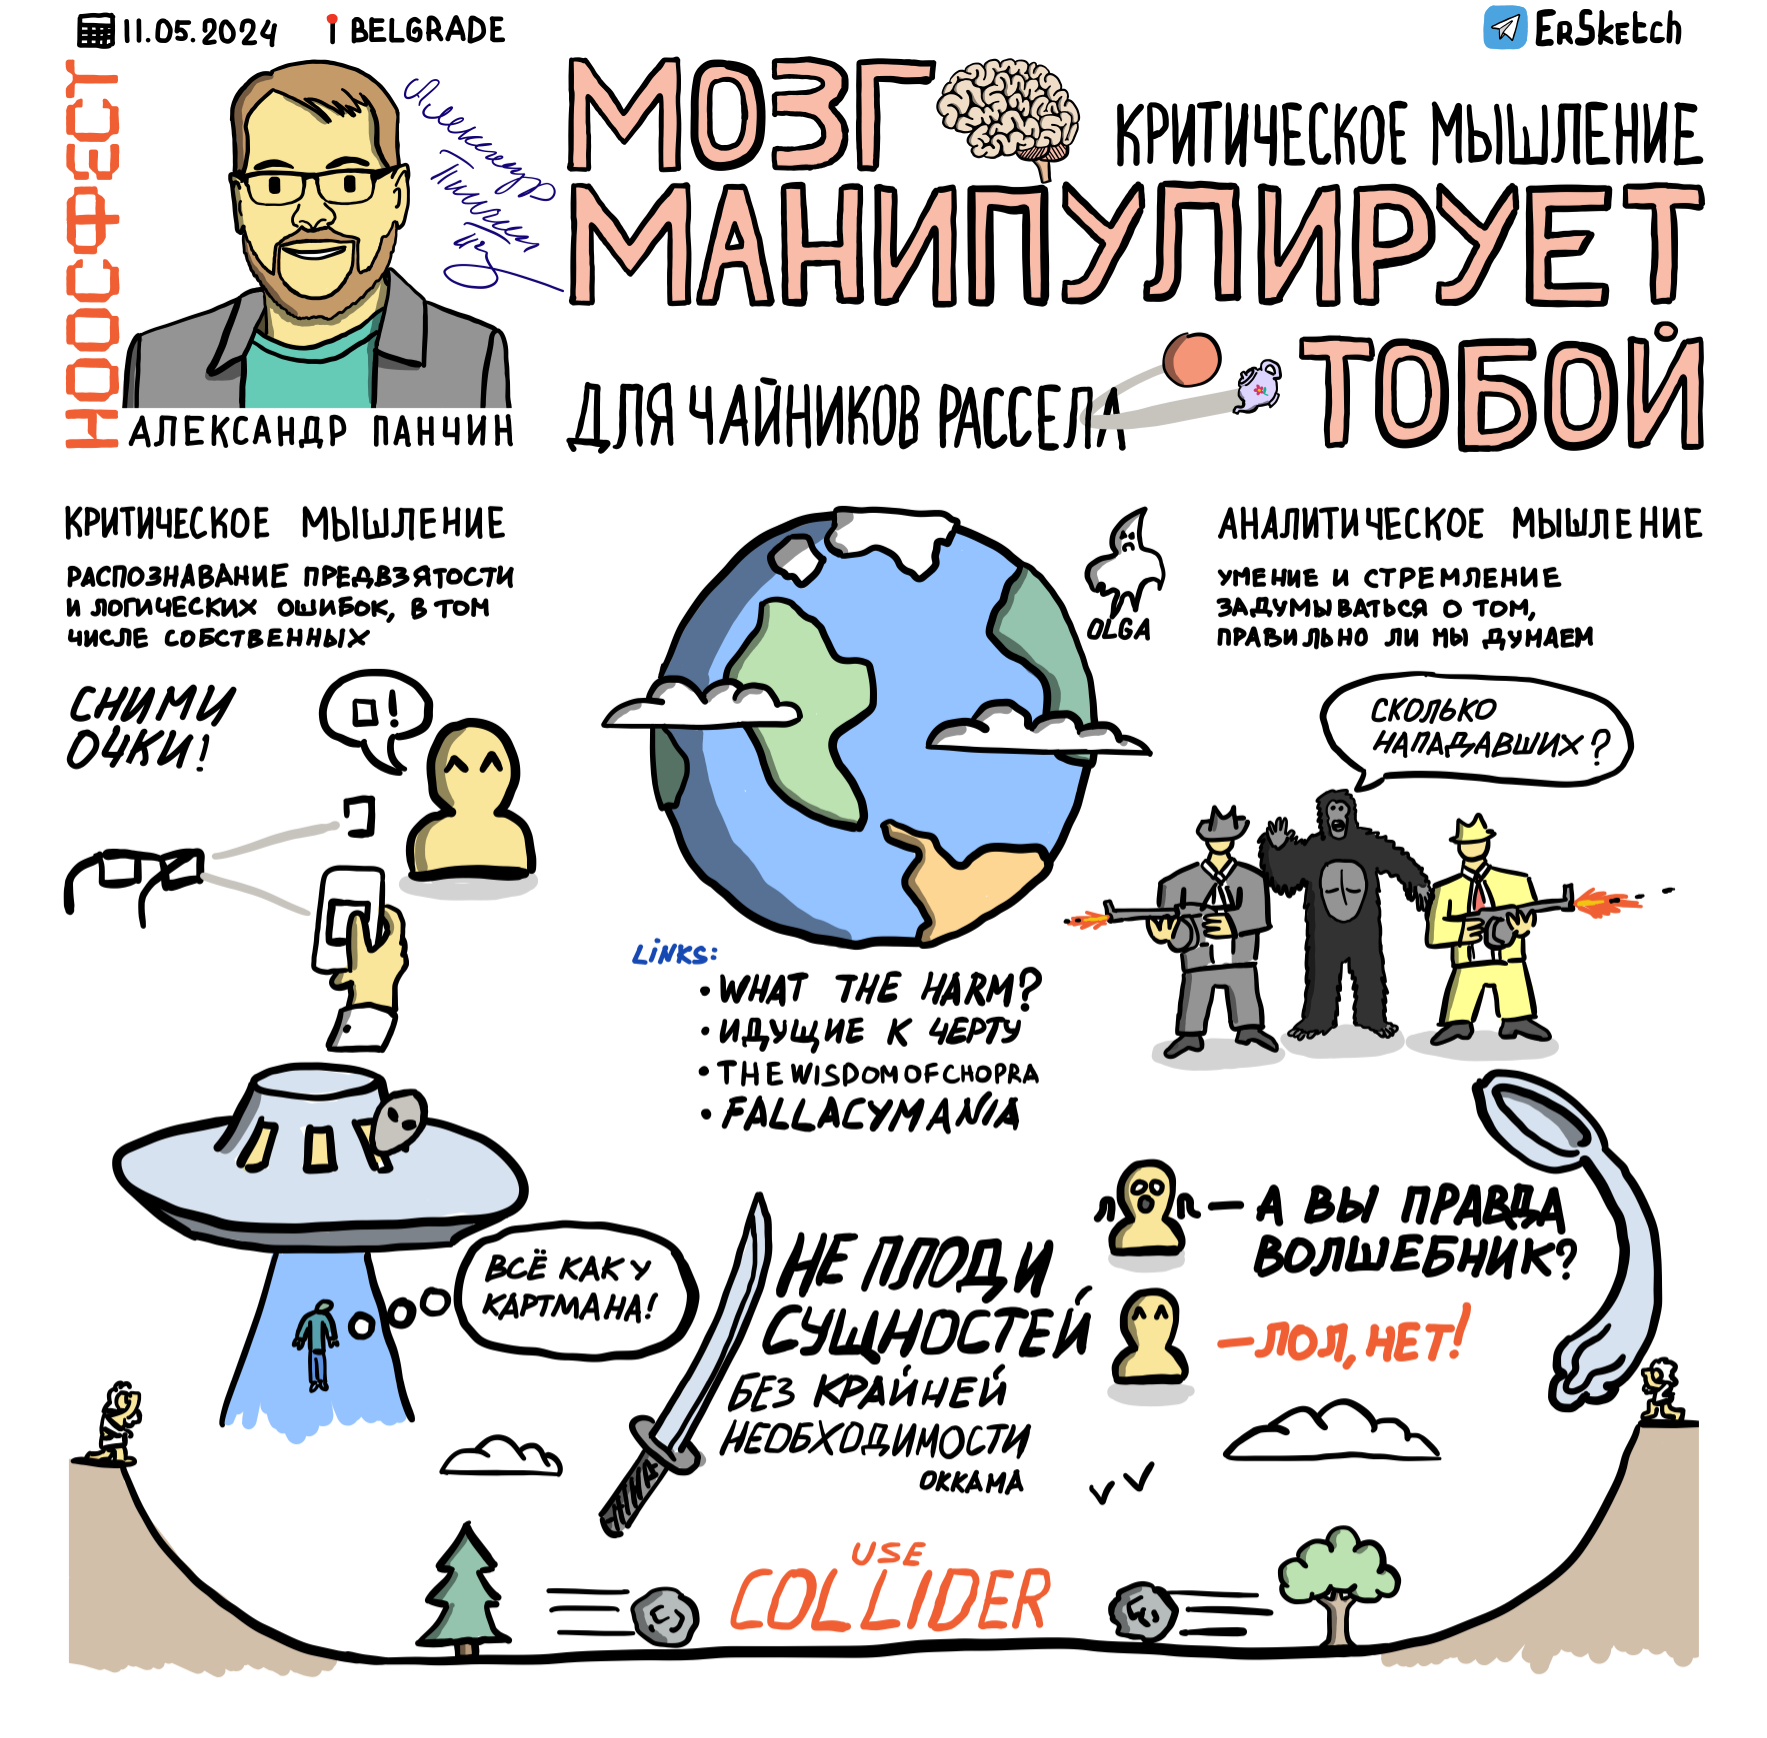 11.05.2024
BELGRADE
ERSketch
НООСФЕСТ
Александр
Панчин
АЛЕКСАНДР ПАНЧИН
МОЗГ
КРИТИЧЕСКОЕ МЫШЛЕНИЕ
МАНИПУЛИРУЕТ
ДЛЯ ЧАЙНИКОВ РАССЕЛА
ТОБОЙ
КРИТИЧЕСКОЕ МЫШЛЕНИЕ
РАСПОЗНАВАНИЕ ПРЕДВЗЯТОСТИ
И ЛОГИЧЕСКИХ ОШИБОК, В ТОМ
ЧИСЛЕ СОБСТВЕННЫХ
СНИМИ
ОЧКИ!
!
OLGA
АНАЛИТИЧЕСКОЕ МЫШЛЕНИЕ
УМЕНИЕ И СТРЕМЛЕНИЕ
ЗАДУМЫВАТЬСЯ О ТОМ,
ПРАВИЛЬНО ЛИ МЫ ДУМАЕМ
СКОЛЬКО
НАПАДАВШИХ?
LINKS:
• WHAT THE HARM?
• ИДУЩИЕ К ЧЕРТУ
• THE WISDOM OF CHOPRA
• FALLACYMANIA
ВСЁ КАК У
КАРТМАНА!
НЕ ПЛОДИ
СУЩНОСТЕЙ
БЕЗ КРАЙНЕЙ
НЕОБХОДИМОСТИ
ОККАМА
— А ВЫ ПРАВДА
ВОЛШЕБНИК?
— ЛОЛ, НЕТ!
USE
COLLIDER